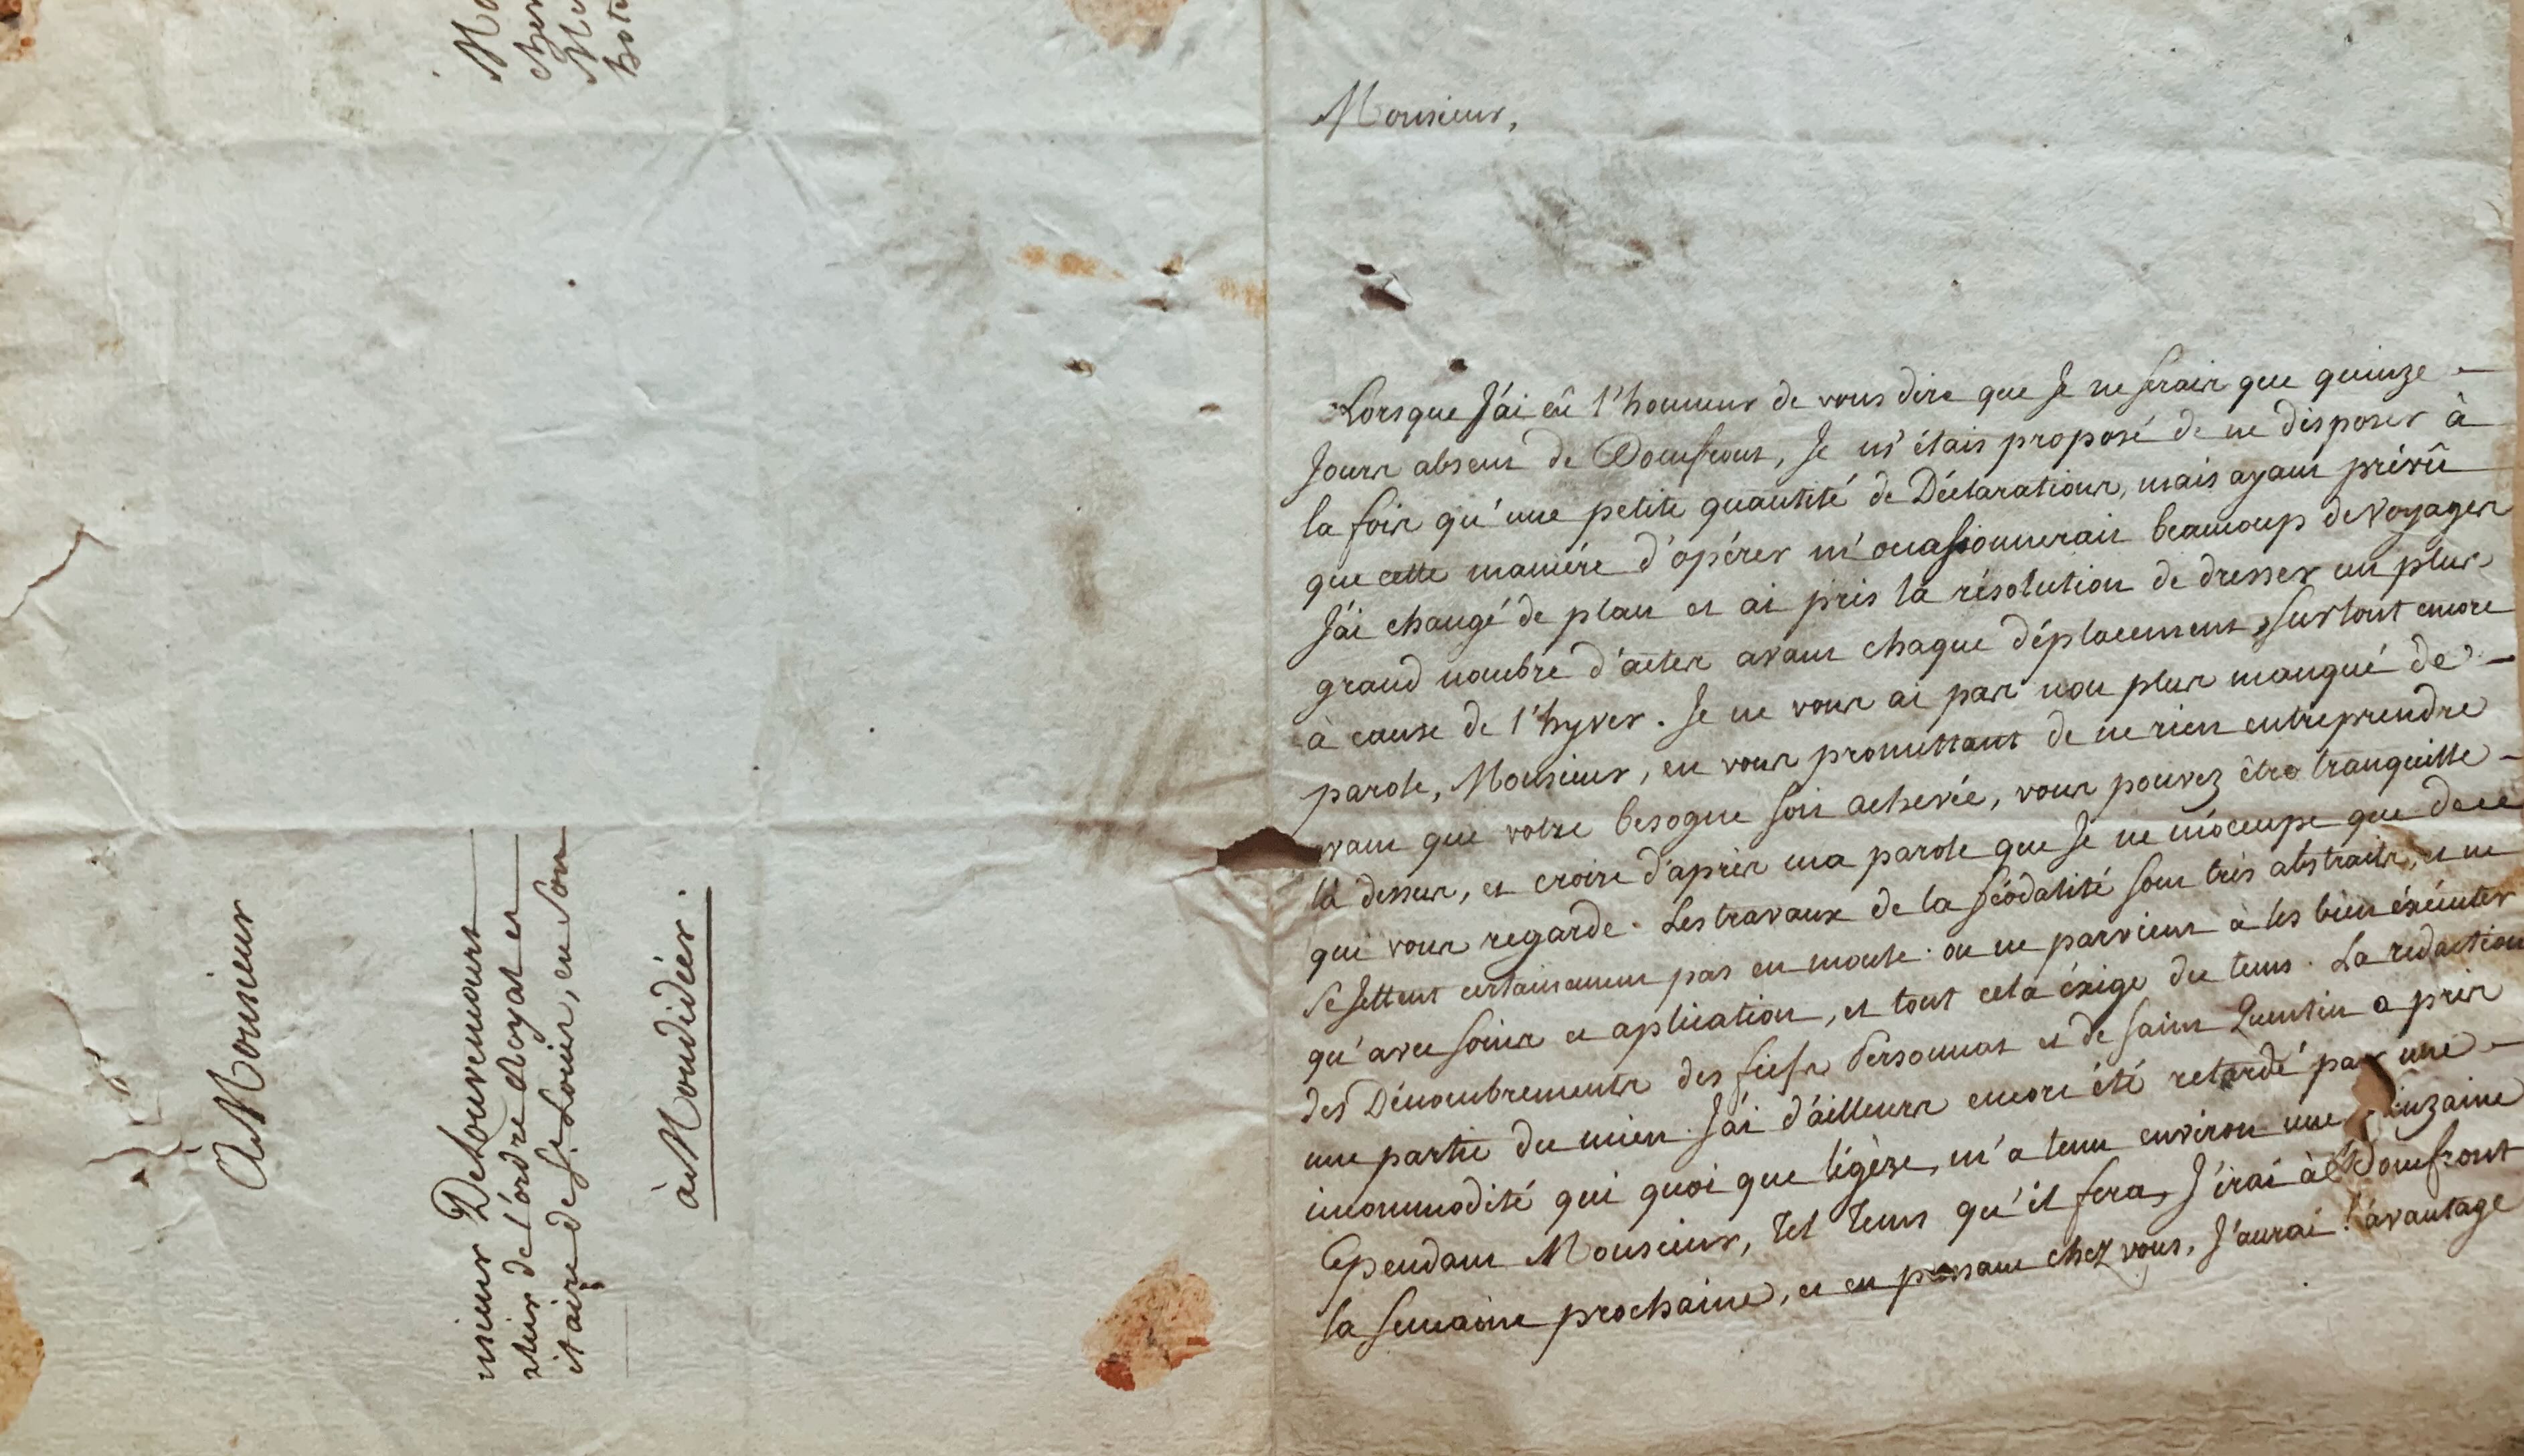 A Monsieur
Monsieur Detouvemont
chevalier de l'ordre Royal et
Militaire de St Louis, en Son
hotel
à Mondidier.
Monsieur,
Lorsque J'ai eû l'honneur de vous dire que Je ne serais que quinze -
Jours absent de Domfront, Je m'étais proposé de ne disposer à
la fois qu'une petite quantité de Déclarations, mais ayant prévû
que cette maniére d'opérer m'ocasionnerait beaucoup de Voyages
J'ai changé de plan et ai pris la résolution de dresser un plus
grand nombre d'actes avant chaque déplacement, Surtout encore
à cause de l'hyver. Je ne vous ai pas non plus manqué de -
parole, Monsieur, en vous promettant de ne rien entreprendre
avant que votre besogne soit achevée, vous pouvez être tranquille -
là dessus, et croire d'après ma parole que Je ne m'occupe que de ce
qui vous regarde. Les travaux de la féodalité sont très abstraits, et ne
Se Jettent certainement pas en moule. on ne parvient à les bien éxécuter
qu'avec soins et aplication, et tout cela éxige du tems. La redaction
des Dénombrements des fiefs Personnat et de Saint Quentin a pris
une partie du mien. J'ai d'ailleurs encore été retardé par une -
incommodité qui quoi que légère, m'a tenu environ une quinzaine
Cependant Monsieur, tel tems qu'il fera, J'irai à Domfront
la Semaine prochaine, et en passant chez vous, J'aurai l'avantage